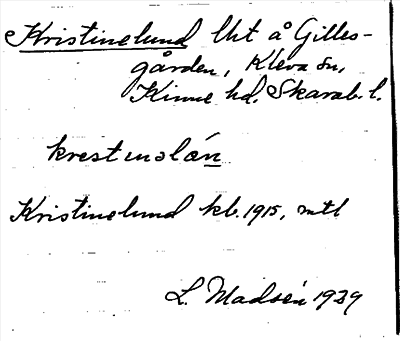 Kristinelund lht å Gilles-
gården, Kleva sn,
Kinne hd. Skarab. l.
krestinəlæ̀n
Kristinelund kb. 1915, mtl
L. Madsén 1939